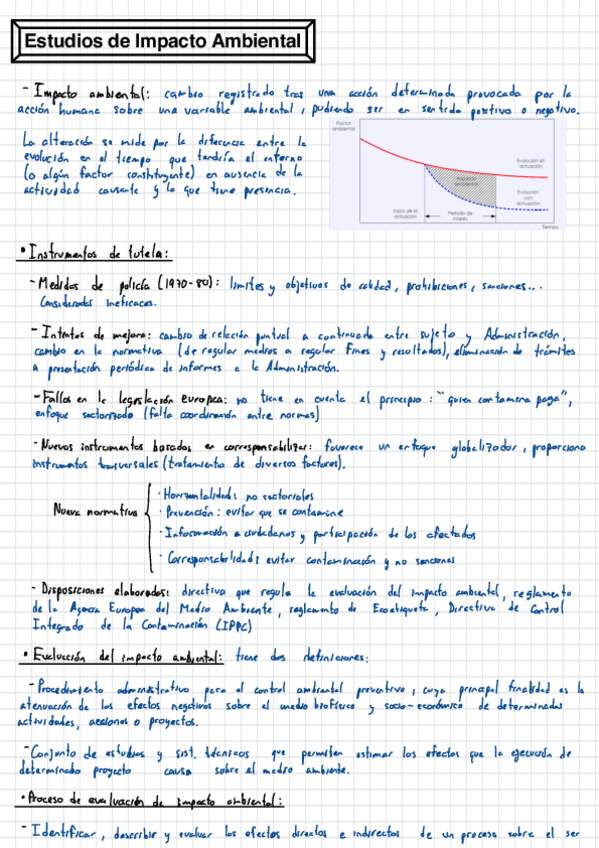 Estudios de Impacto Ambiental
- Impacto ambiental: cambio registrado tras una acción determinada provocada por la
acción humana sobre una variable ambiental, pudiendo ser en sentido positivo o negativo.
La alteración se mide por la diferencia entre la
evolución en el tiempo que tendría el entorno
(o algún factor constituyente) en ausencia de la
actividad causante y lo que tiene presencia.
Factor
ambiental
Evolución sin
actuación
Impacto
ambiental
Evolución
con
actuación
Inicio de la
actuación
Periodo de
interés
Tiempo
• Instrumentos de tutela:
- Medidas de policía (1970-80): límites y objetivos de calidad, prohibiciones, sanciones...
Consideradas ineficaces.
- Intentos de mejora: cambio de relación puntual a continuada entre sujeto y Administración,
cambio en la normativa (de regular medios a regular fines y resultados), eliminación de trámites
a presentación periódica de informes a la Administración.
- Fallos en la legislación europea: no tiene en cuenta el principio: "quien contamina paga",
enfoque sectorizado (falta coordinación entre normas)
- Nuevos instrumentos basados en corresponsabilizar: favorece un enfoque globalizador, proporciona
instrumentos trasversales (tratamiento de diversos factores).
Nueva normativa
· Horizontalidad: no sectoriales
· Prevención: evitar que se contamine
· Información a ciudadanos y participación de los afectados
· Corresponsabilidad: evitar contaminación y no sanciones
- Disposiciones elaboradas: directiva que regula la evaluación del impacto ambiental, reglamento
de la Agencia Europea del Medio Ambiente, reglamento de Ecoetiqueta, Directiva de Control
Integrado de la Contaminación (IPPC)
• Evaluación del impacto ambiental: tiene dos definiciones:
- Procedimiento administrativo para el control ambiental preventivo, cuya principal finalidad es la
atenuación de los efectos negativos sobre el medio biofísico y socio-económico de determinadas
actividades, acciones o proyectos.
- Conjunto de estudios y sist. técnicos que permiten estimar los efectos que la ejecución de
determinado proyecto causa sobre el medio ambiente.
• Proceso de evaluación de impacto ambiental:
- Identificar, describir y evaluar los efectos directos e indirectos de un proceso sobre el ser